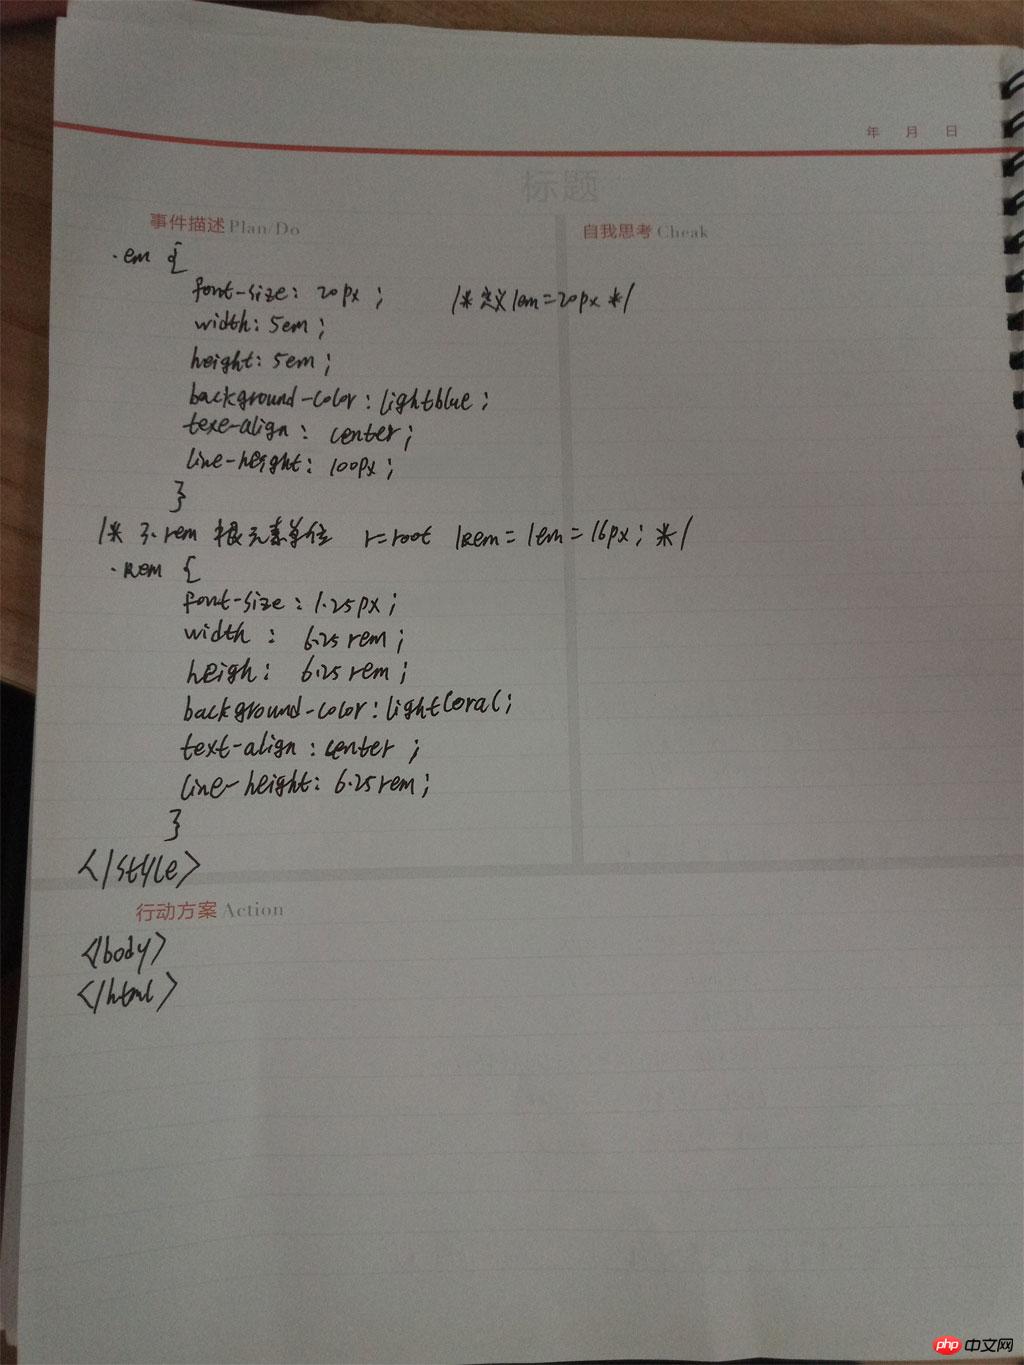 年 月 日
标题
事件描述 Plan/Do
自我思考 Cheak
.em {
font-size: 20px ; /* 定义1em=20px */
width: 5em ;
height: 5em ;
background-color : lightblue ;
texe-align : center ;
line-height : 100px ;
}
/* 3. rem 根元素单位 r=root 1Rem = 1em = 16px ; */
.Rem {
font-size : 1.25px ;
width : 6.25 rem ;
heigh : 6.25 rem ;
background-color : lightCoral ;
text-align : center ;
line-height : 6.25 rem ;
}
</style>
行动方案 Action
</body>
</html>
php 中文网